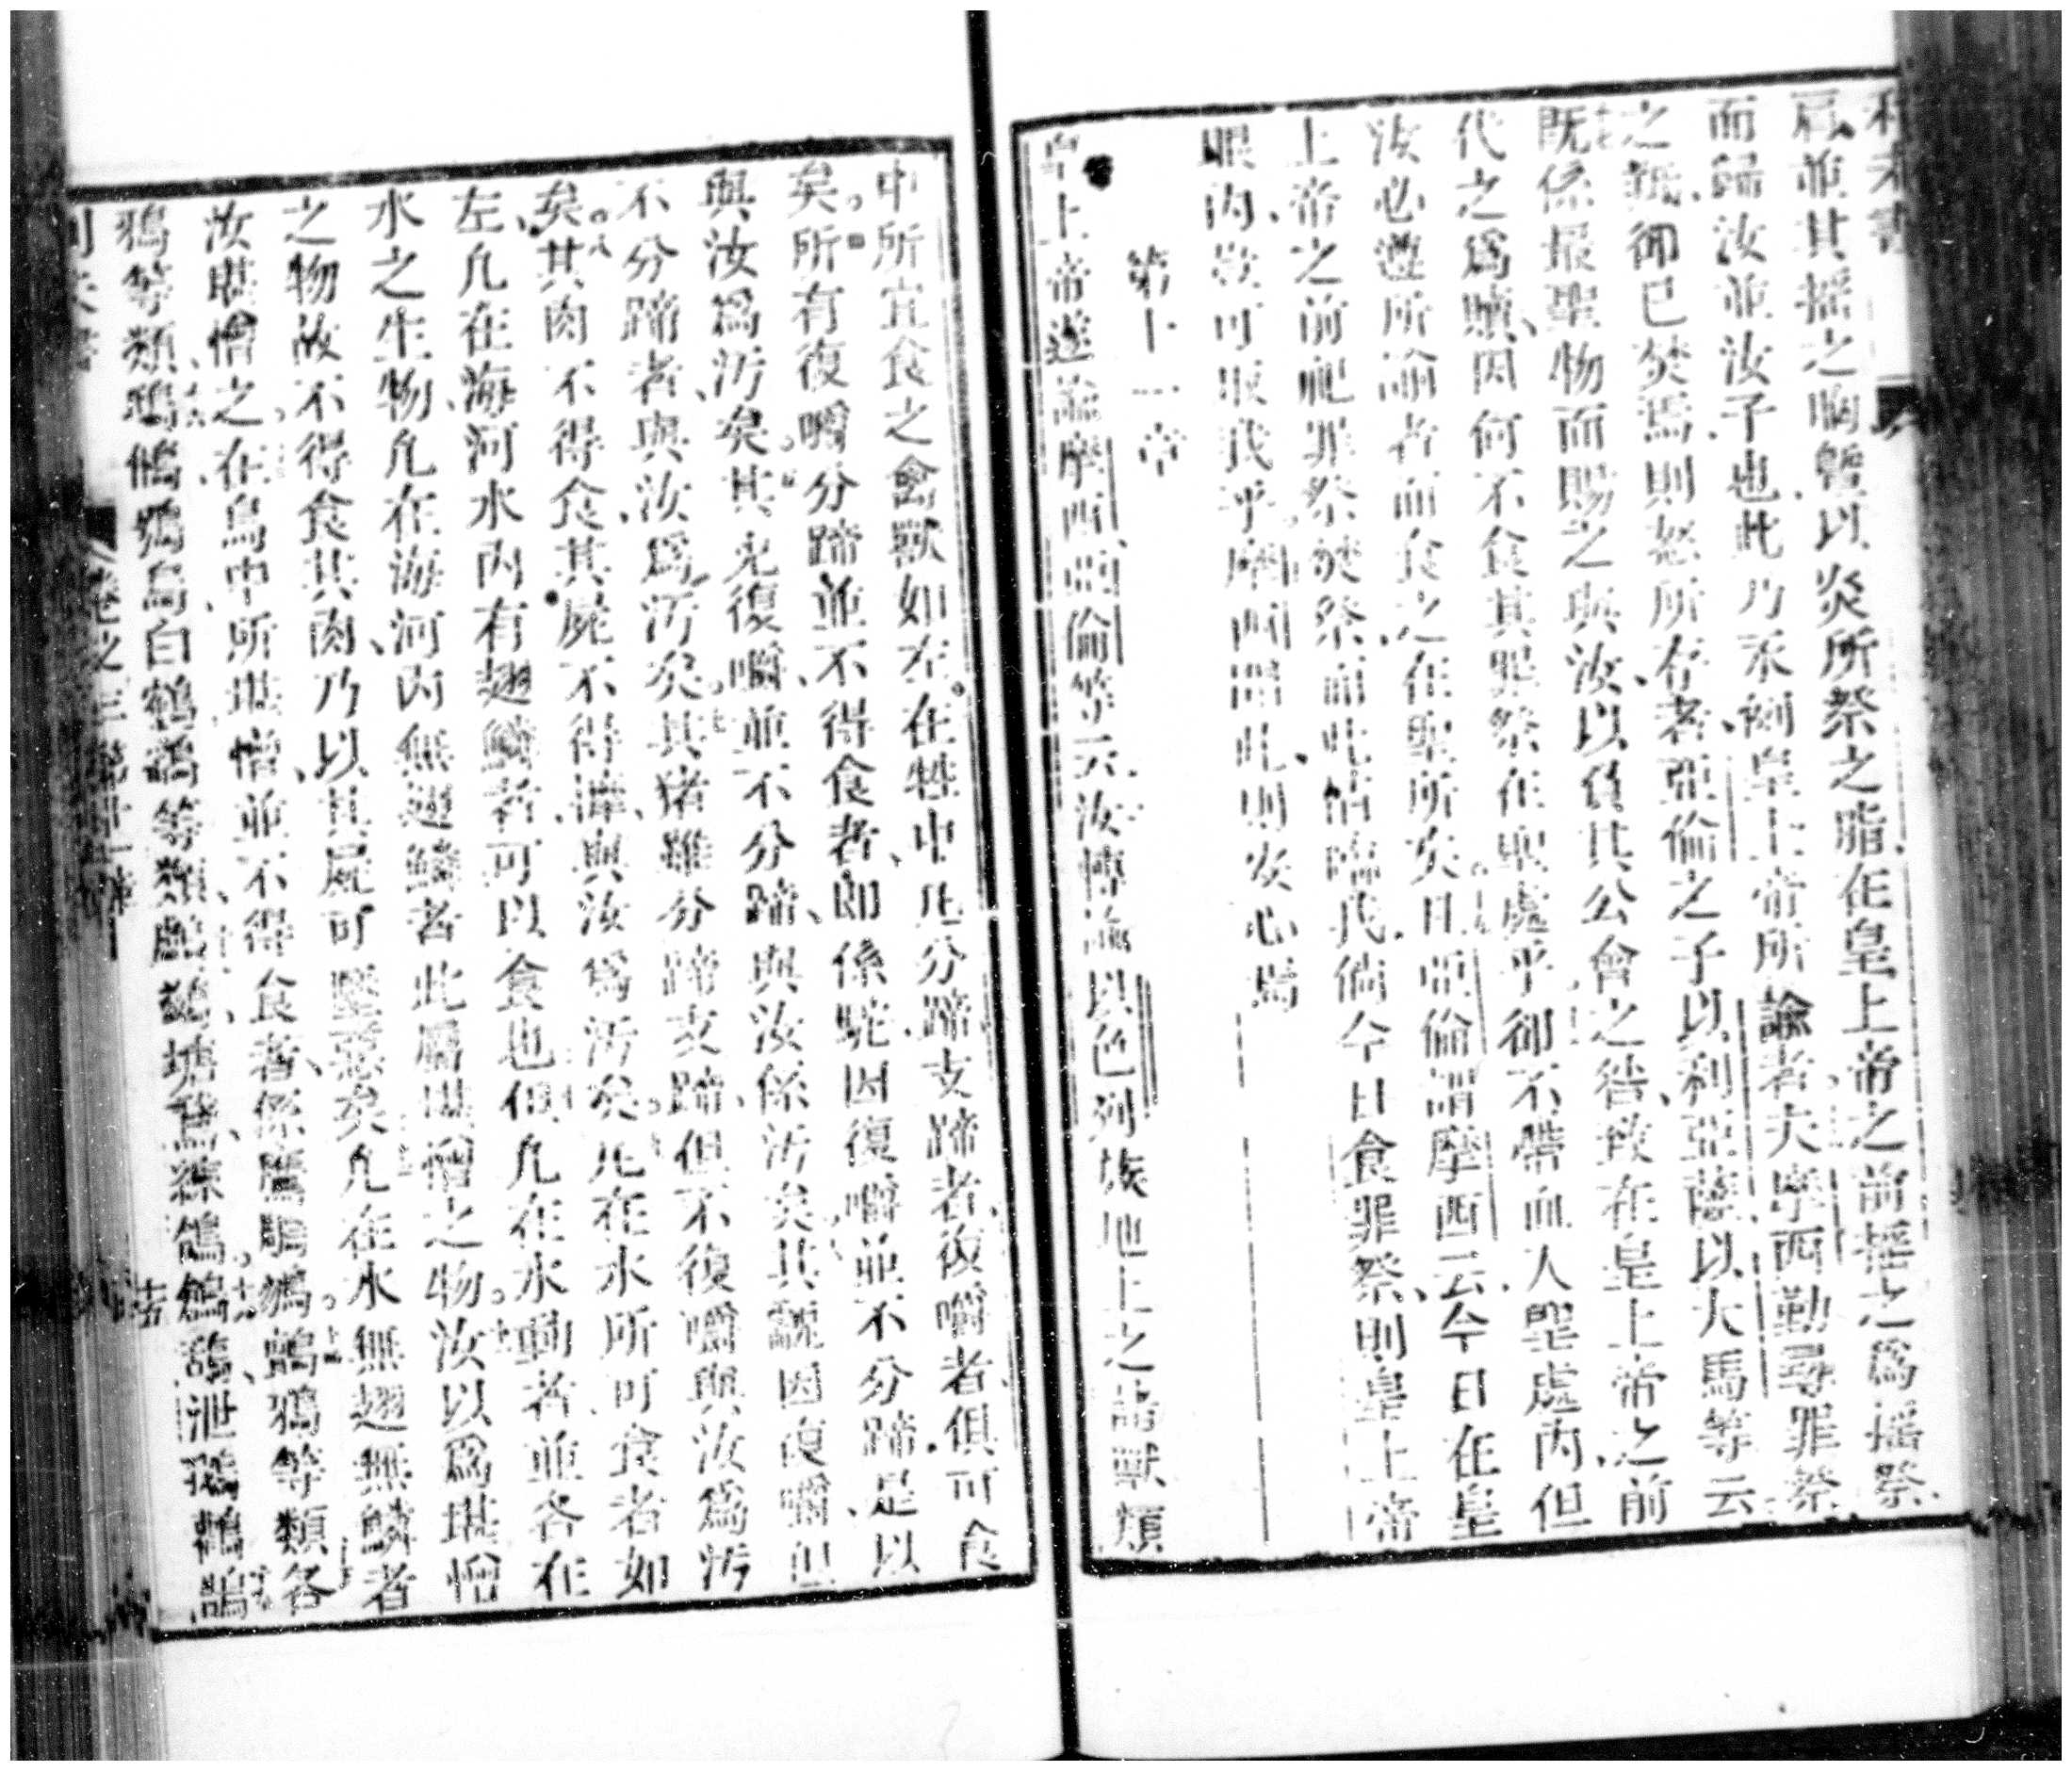 肩並其搖之胸暨以炎所祭之脂在皇上帝之前搖之爲搖祭
而歸汝並汝子也此乃永例皇上帝所諭者夫摩西勤尋罪祭
之羝卻已焚焉則怒所存者亞倫之子以利亞薩以大馬等云
既係最聖物而賜之與汝以負其公會之咎致在皇上帝之前
代之爲贖因何不食其罪祭在聖處乎卻不帶血入聖處內但
汝必遵所諭者而食之在聖所矣亞倫謂摩西云今日在皇
上帝之前祀罪祭焚祭而此臨我倘今日食罪祭則皇上帝
眼內敢可取我乎摩西聞此則安心焉
第十一章
皇上帝遂諭摩西亞倫等云汝傳諭以色列族地上之諸獸類
中所宜食之禽獸如左在牲中凡分蹄支蹄者復嚼者俱可食
矣四所有復嚼分蹄並不得食者卽係駝因復嚼並不分蹄是以
與汝爲汚矣其兔復嚼並不分蹄與汝係汚矣其因復嚼但
不分蹄者與汝爲汚矣其猪雖分蹄支蹄但不復嚼與汝爲汚
矣八其肉不得食其屍不得摸與汝爲汚矣凡在水所可食者如
左凡在海河水內有翅鱗者可以食也但凡在水動者並各在
水之生物凡在海河內無翅鱗者此屬堪憎之物汝以爲堪憎
之物故不得食其肉乃以其屍可堅惡矣凡在水無翅無鱗者
汝堪憎之在鳥中所堪憎並不得食者係鷹鵰鶚鷓鴉等類各
鴉等類鴞鵂鶂烏白鶴鷂等類鸕鶿塘鵞綠鴿鵃鴰泄鵝鶺鵲
列未書 卷之三 第十一章